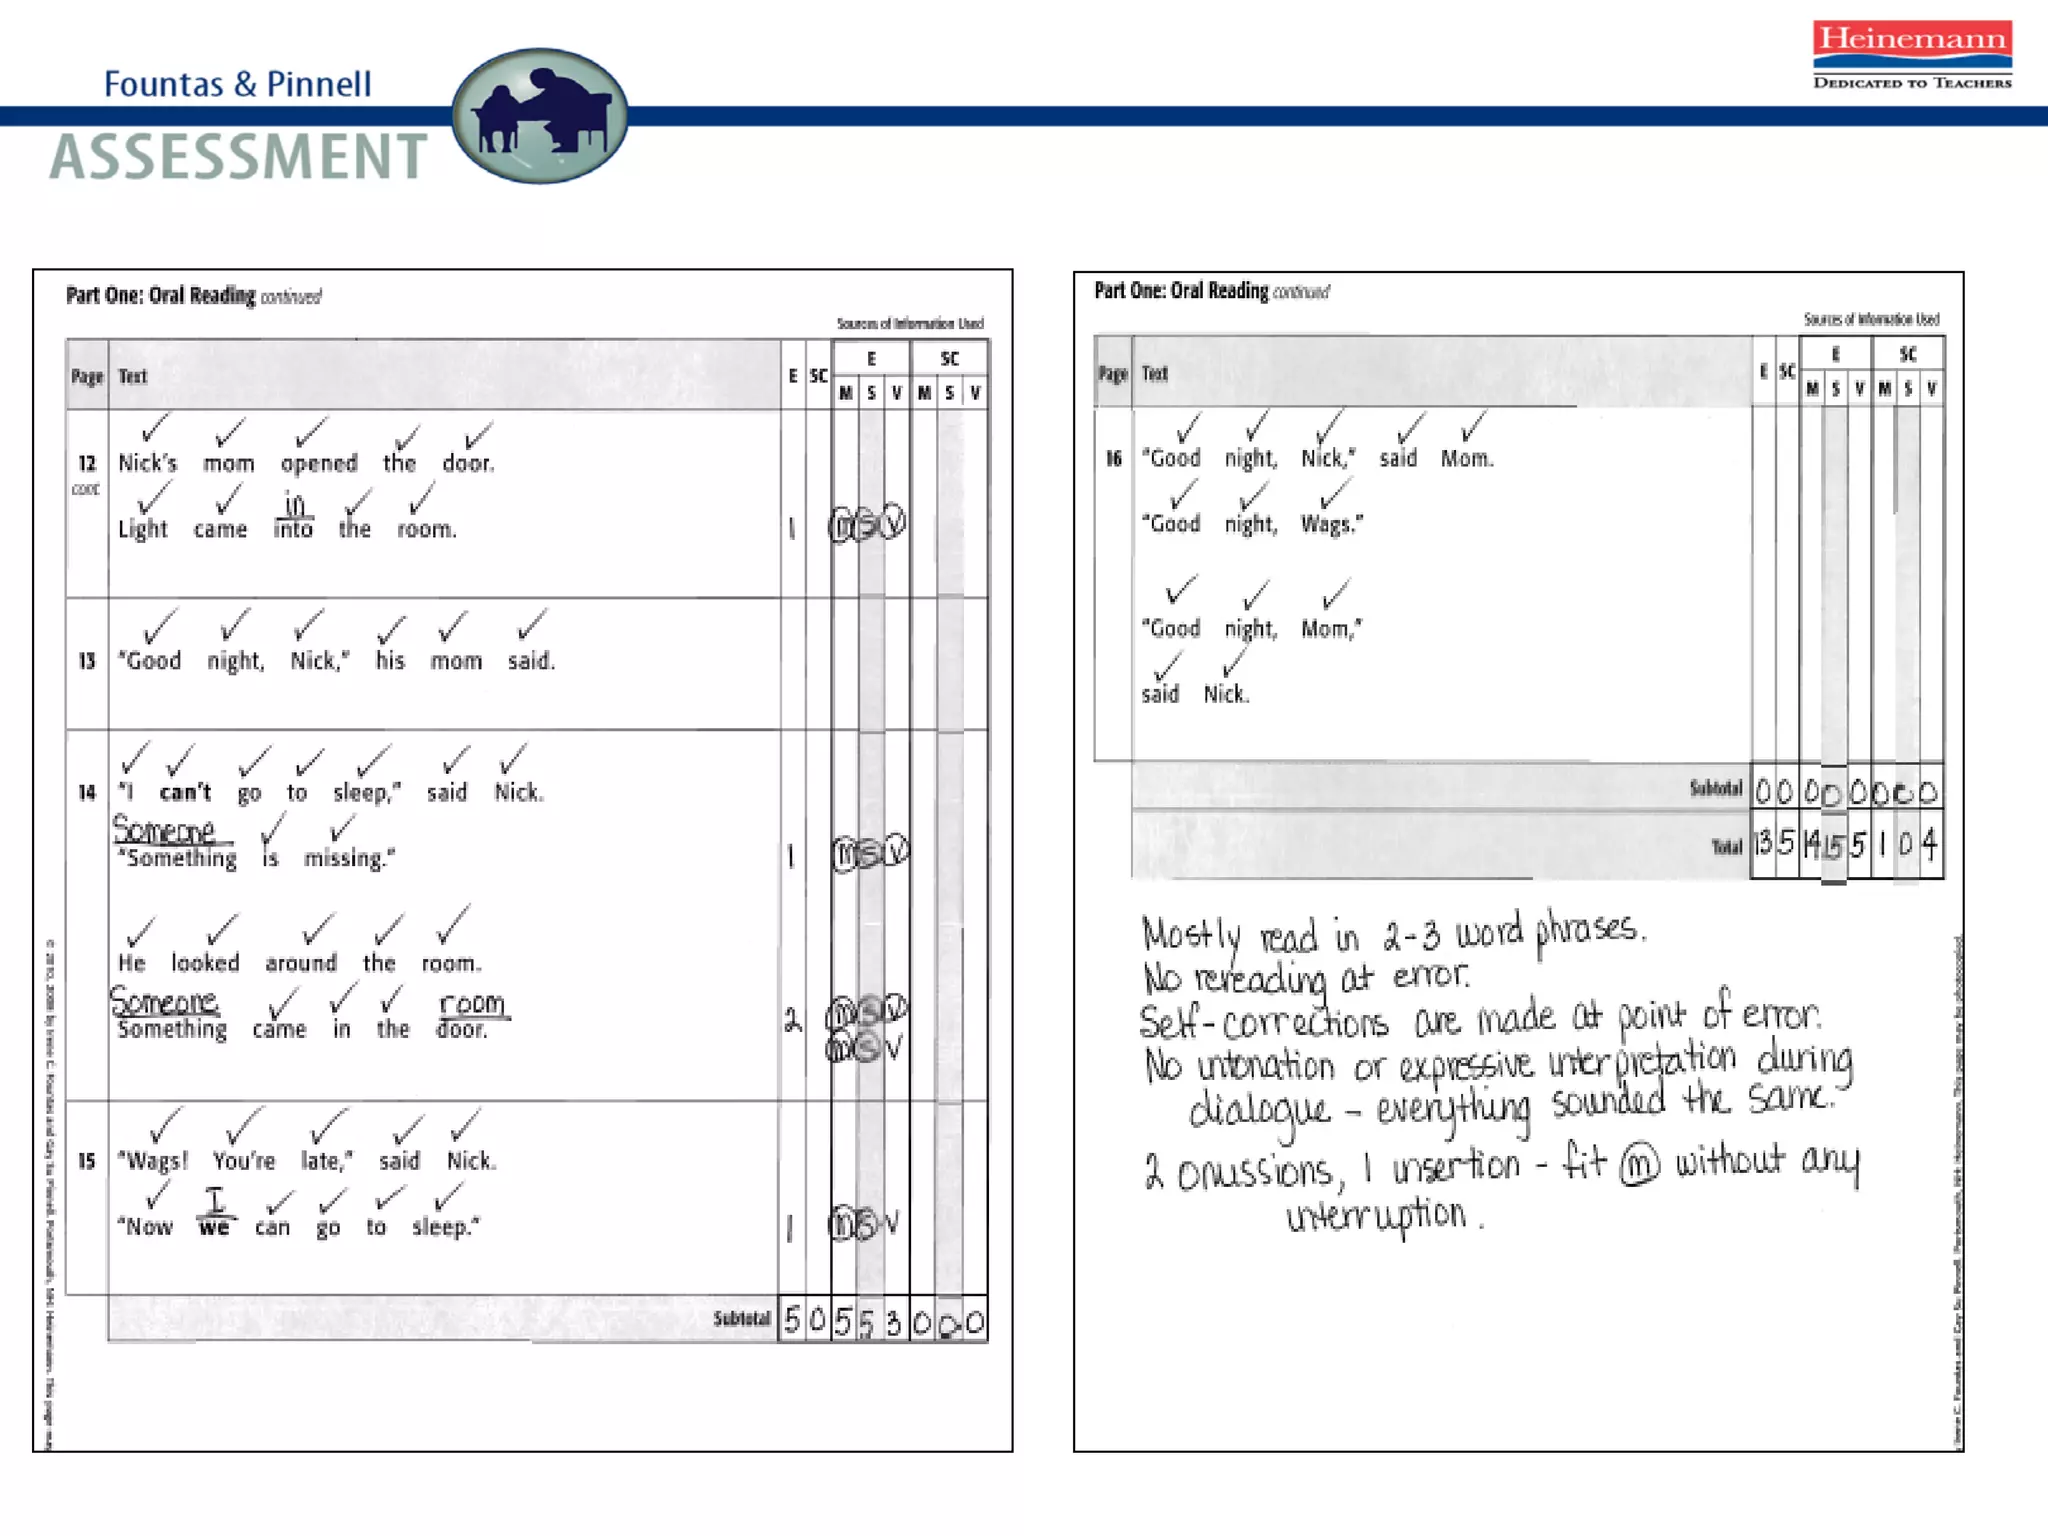 Fountas & Pinnell
ASSESSMENT
Heinemann
DEDICATED TO TEACHERS
Part One: Oral Reading continued
Sources of Information Used
E SC
Page Text E SC M S V M S V
12 Nick's mom opened the door.
cont.
in
Light came into the room. 1 M S V
13 "Good night, Nick," his mom said.
14 "I can't go to sleep," said Nick.
Someone
"Something is missing." 1 M S V
He looked around the room.
Someone room
Something came in the door. 2 M S V
M S V
15 "Wags! You're late," said Nick.
I
"Now we can go to sleep." 1 M S V
Subtotal 5 0 5 5 3 0 0 0
Part One: Oral Reading continued
Sources of Information Used
E SC
Page Text E SC M S V M S V
16 "Good night, Nick," said Mom.
"Good night, Wags."
"Good night, Mom,"
said Nick.
Subtotal 0 0 0 0 0 0 0 0
Total 13 5 14 15 5 1 0 4
Mostly read in 2-3 word phrases.
No rereading at error.
Self-corrections are made at point of error.
No intonation or expressive interpretation during
dialogue - everything sounded the same.
2 omissions, 1 insertion - fit m without any
interruption.